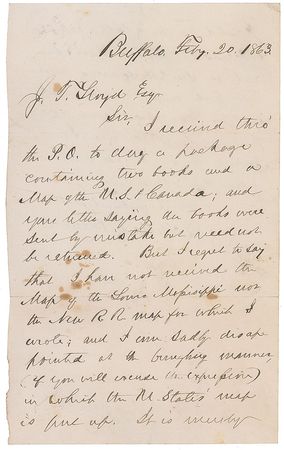 Buffalo, Feby. 20. 1863.
J. T. Lloyd Esq
Sir,
I received thro'
the P.O. to day a package
containing two books and a
Map of the U.S. & Canada; and
your letter saying the books were
sent by mistake but need not
be returned. But I regret to say
that I have not received the
Map of the Lower Mississippi nor
the New R R map for which I
wrote; and I am sadly disap
pointed at the bungling manner,
(if you will excuse the expression)
in which the U. States' map
is put up. It is merely